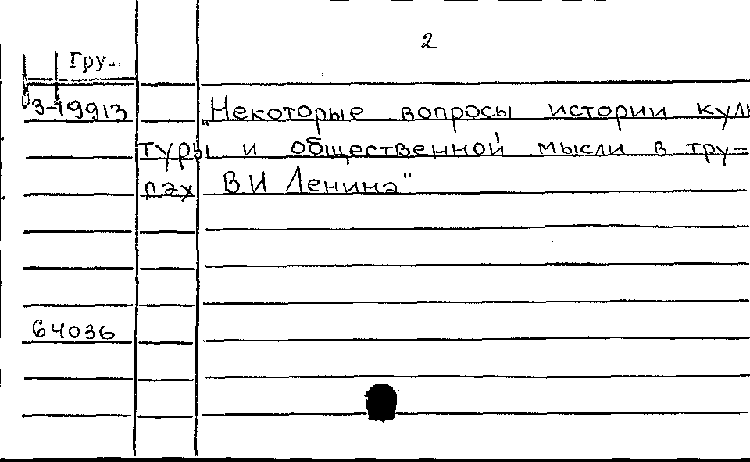 2
Гру-
З-19913
„Некоторые вопросы истории куль
туры и общественной мысли в тру-
дах В.И Ленина"
64036